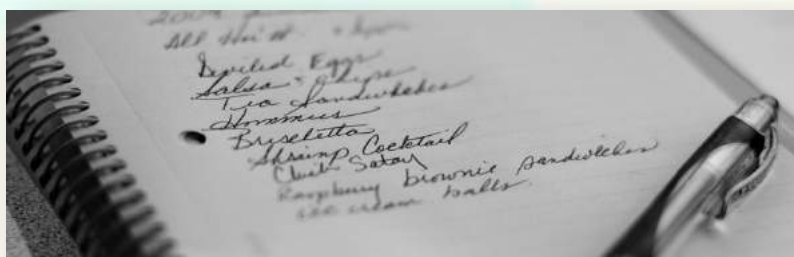 2009
All
Deviled Eggs
Salsa & Chips
Tea Sandwiches
Hommus
Bruschetta
Shrimp Cocktail
Satay
Raspberry brownie sandwiches
ice cream balls